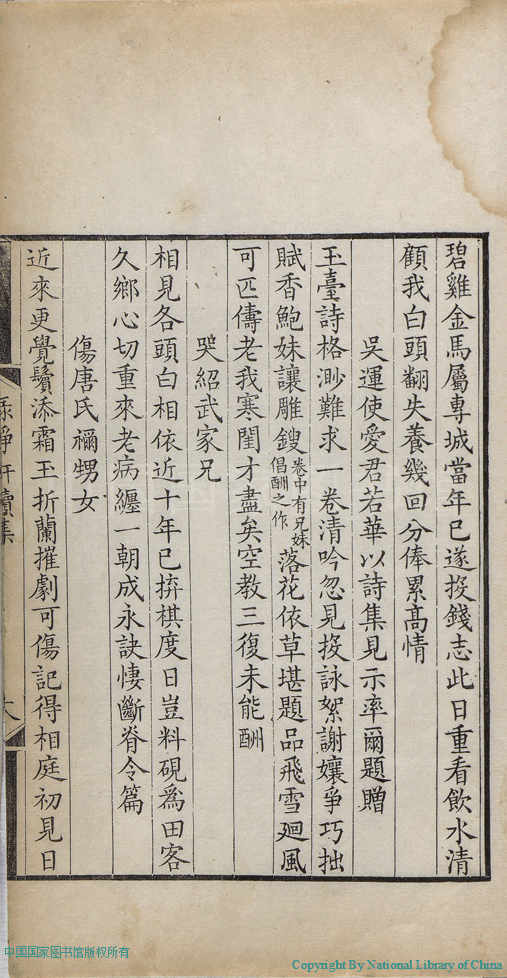 碧雞金馬屬專城當年已遂投錢志此日重看飲水清
顧我白頭翻失養幾回分俸累高情
吳運使愛君若華以詩集見示率爾題贈
玉臺詩格渺難求一卷清吟忽見投詠絮謝孃爭巧拙
賦香鮑妹讓雕鎪卷中有兄妹倡酬之作落花依草堪題品飛雪廻風
可匹儔老我寒閨才盡矣空教三復未能酬
哭紹武家兄
相見各頭白相依近十年已拚棋度日豈料硯爲田客
久鄉心切重來老病纏一朝成永訣悽斷脊令篇
傷唐氏禰甥女
近來更覺鬢添霜玉折蘭摧劇可傷記得相庭初見日
續集
中国国家图书馆版权所有
Copyright By National Library of China